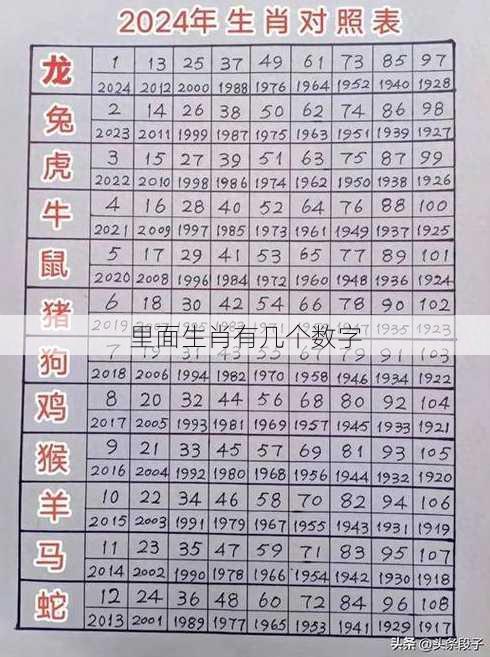 2024年生肖对照表
龙 1 13 25 37 49 61 73 85 97
2024 2012 2000 1988 1976 1964 1952 1940 1928
兔 2 14 26 38 50 62 74 86 98
2023 2011 1999 1987 1975 1963 1951 1939 1927
虎 3 15 27 39 51 63 75 87 99
2022 2010 1998 1986 1974 1962 1950 1938 1926
牛 4 16 28 40 52 64 76 88 100
2021 2009 1997 1985 1973 1961 1949 1937 1925
鼠 5 17 29 41 53 65 77 89 101
2020 2008 1996 1984 1972 1960 1948 1936 1924
猪 6 18 30 42 54 66 78 90 102
2019 1935 1923
里面生肖有几个数字
狗 7 19 31 43 55 67 79 91 103
2018 2006 1994 1982 1970 1958 1946 1934 1922
鸡 8 20 32 44 56 68 80 92 104
2017 2005 1993 1981 1969 1957 1945 1933 1921
猴 9 21 33 45 57 69 81 93 105
2016 2004 1992 1980 1968 1956 1944 1932 1920
羊 10 22 34 46 58 70 82 94 106
2015 2003 1991 1979 1967 1955 1943 1931 1919
马 11 23 35 47 59 71 83 95 107
2014 2002 1990 1978 1966 1954 1942 1930 1918
蛇 12 24 36 48 60 72 84 96 108
2013 2001 1989 1977 1965 1953 1941 1929 1917
头条 @头条段子